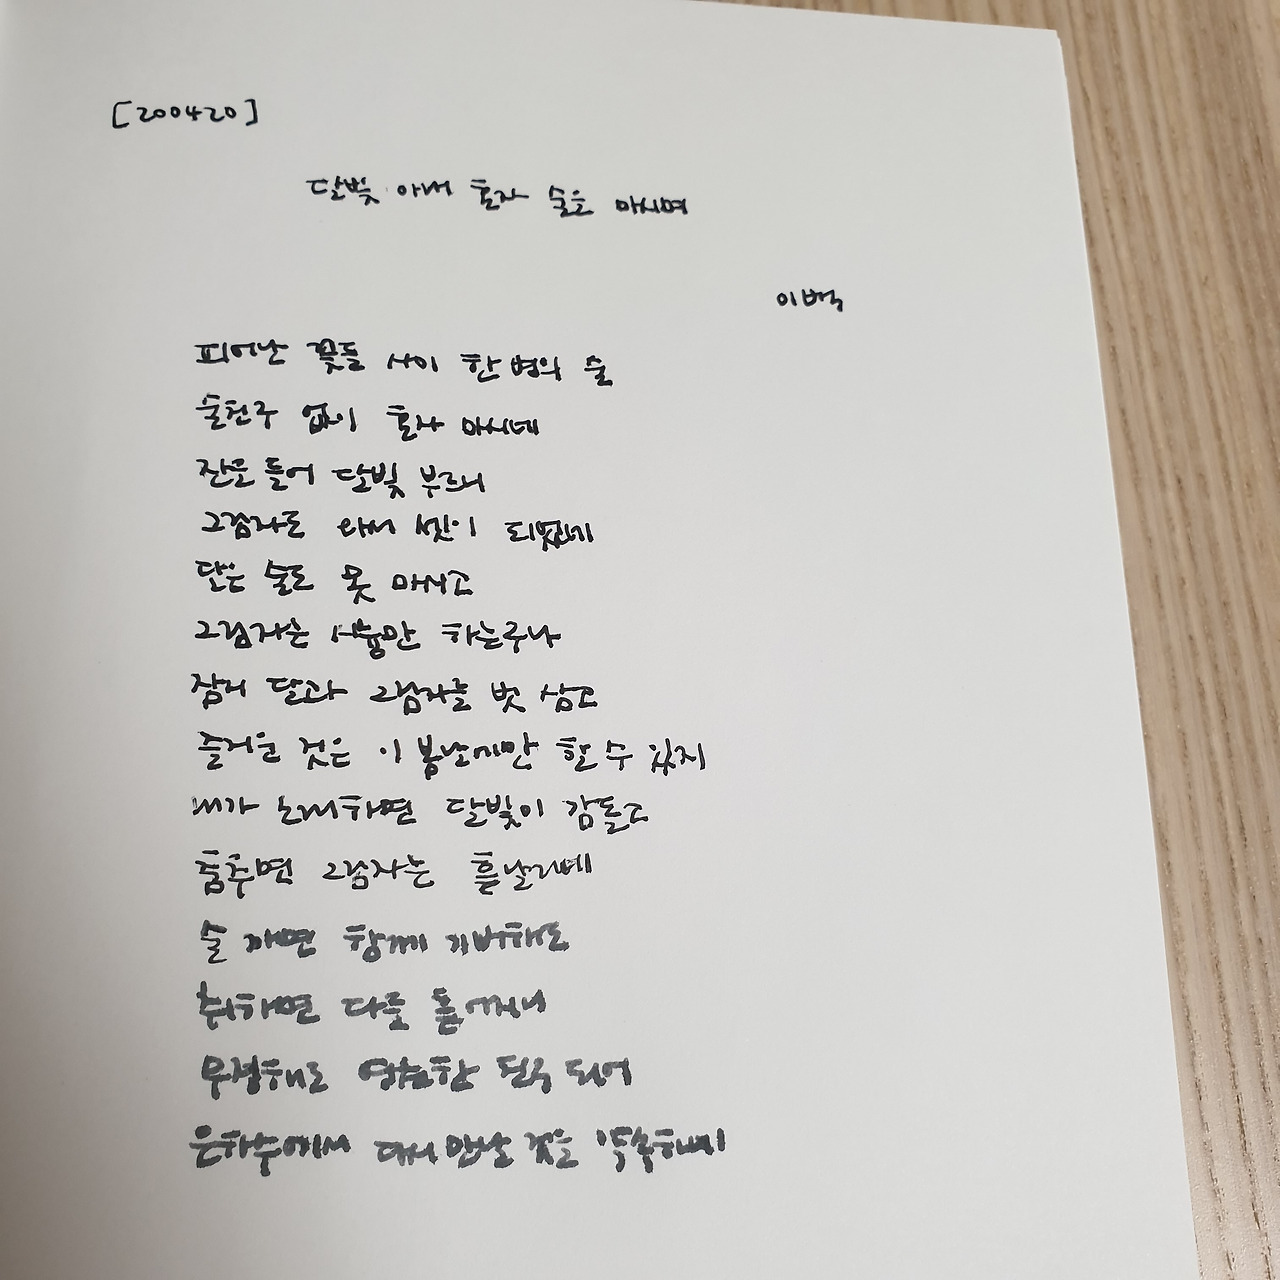 [200420]
달빛 아래 혼자 술을 마시며
이백
피어난 꽃들 사이 한 병의 술
술친구 없이 혼자 마시네
잔을 들어 달빛 부르니
그림자도 와서 셋이 되었네
달은 술도 못 마시고
그림자는 시늉만 하는구나
잠시 달과 그림자를 벗 삼고
즐거운 것은 이 봄날에만 할 수 있지
내가 노래하면 달빛이 감돌고
춤추면 그림자는 흩날리네
술 깨면 함께 기뻐해도
취하면 다들 흩어지니
무정해도 영원한 친구 되어
은하수에서 다시 만날 것을 약속하네